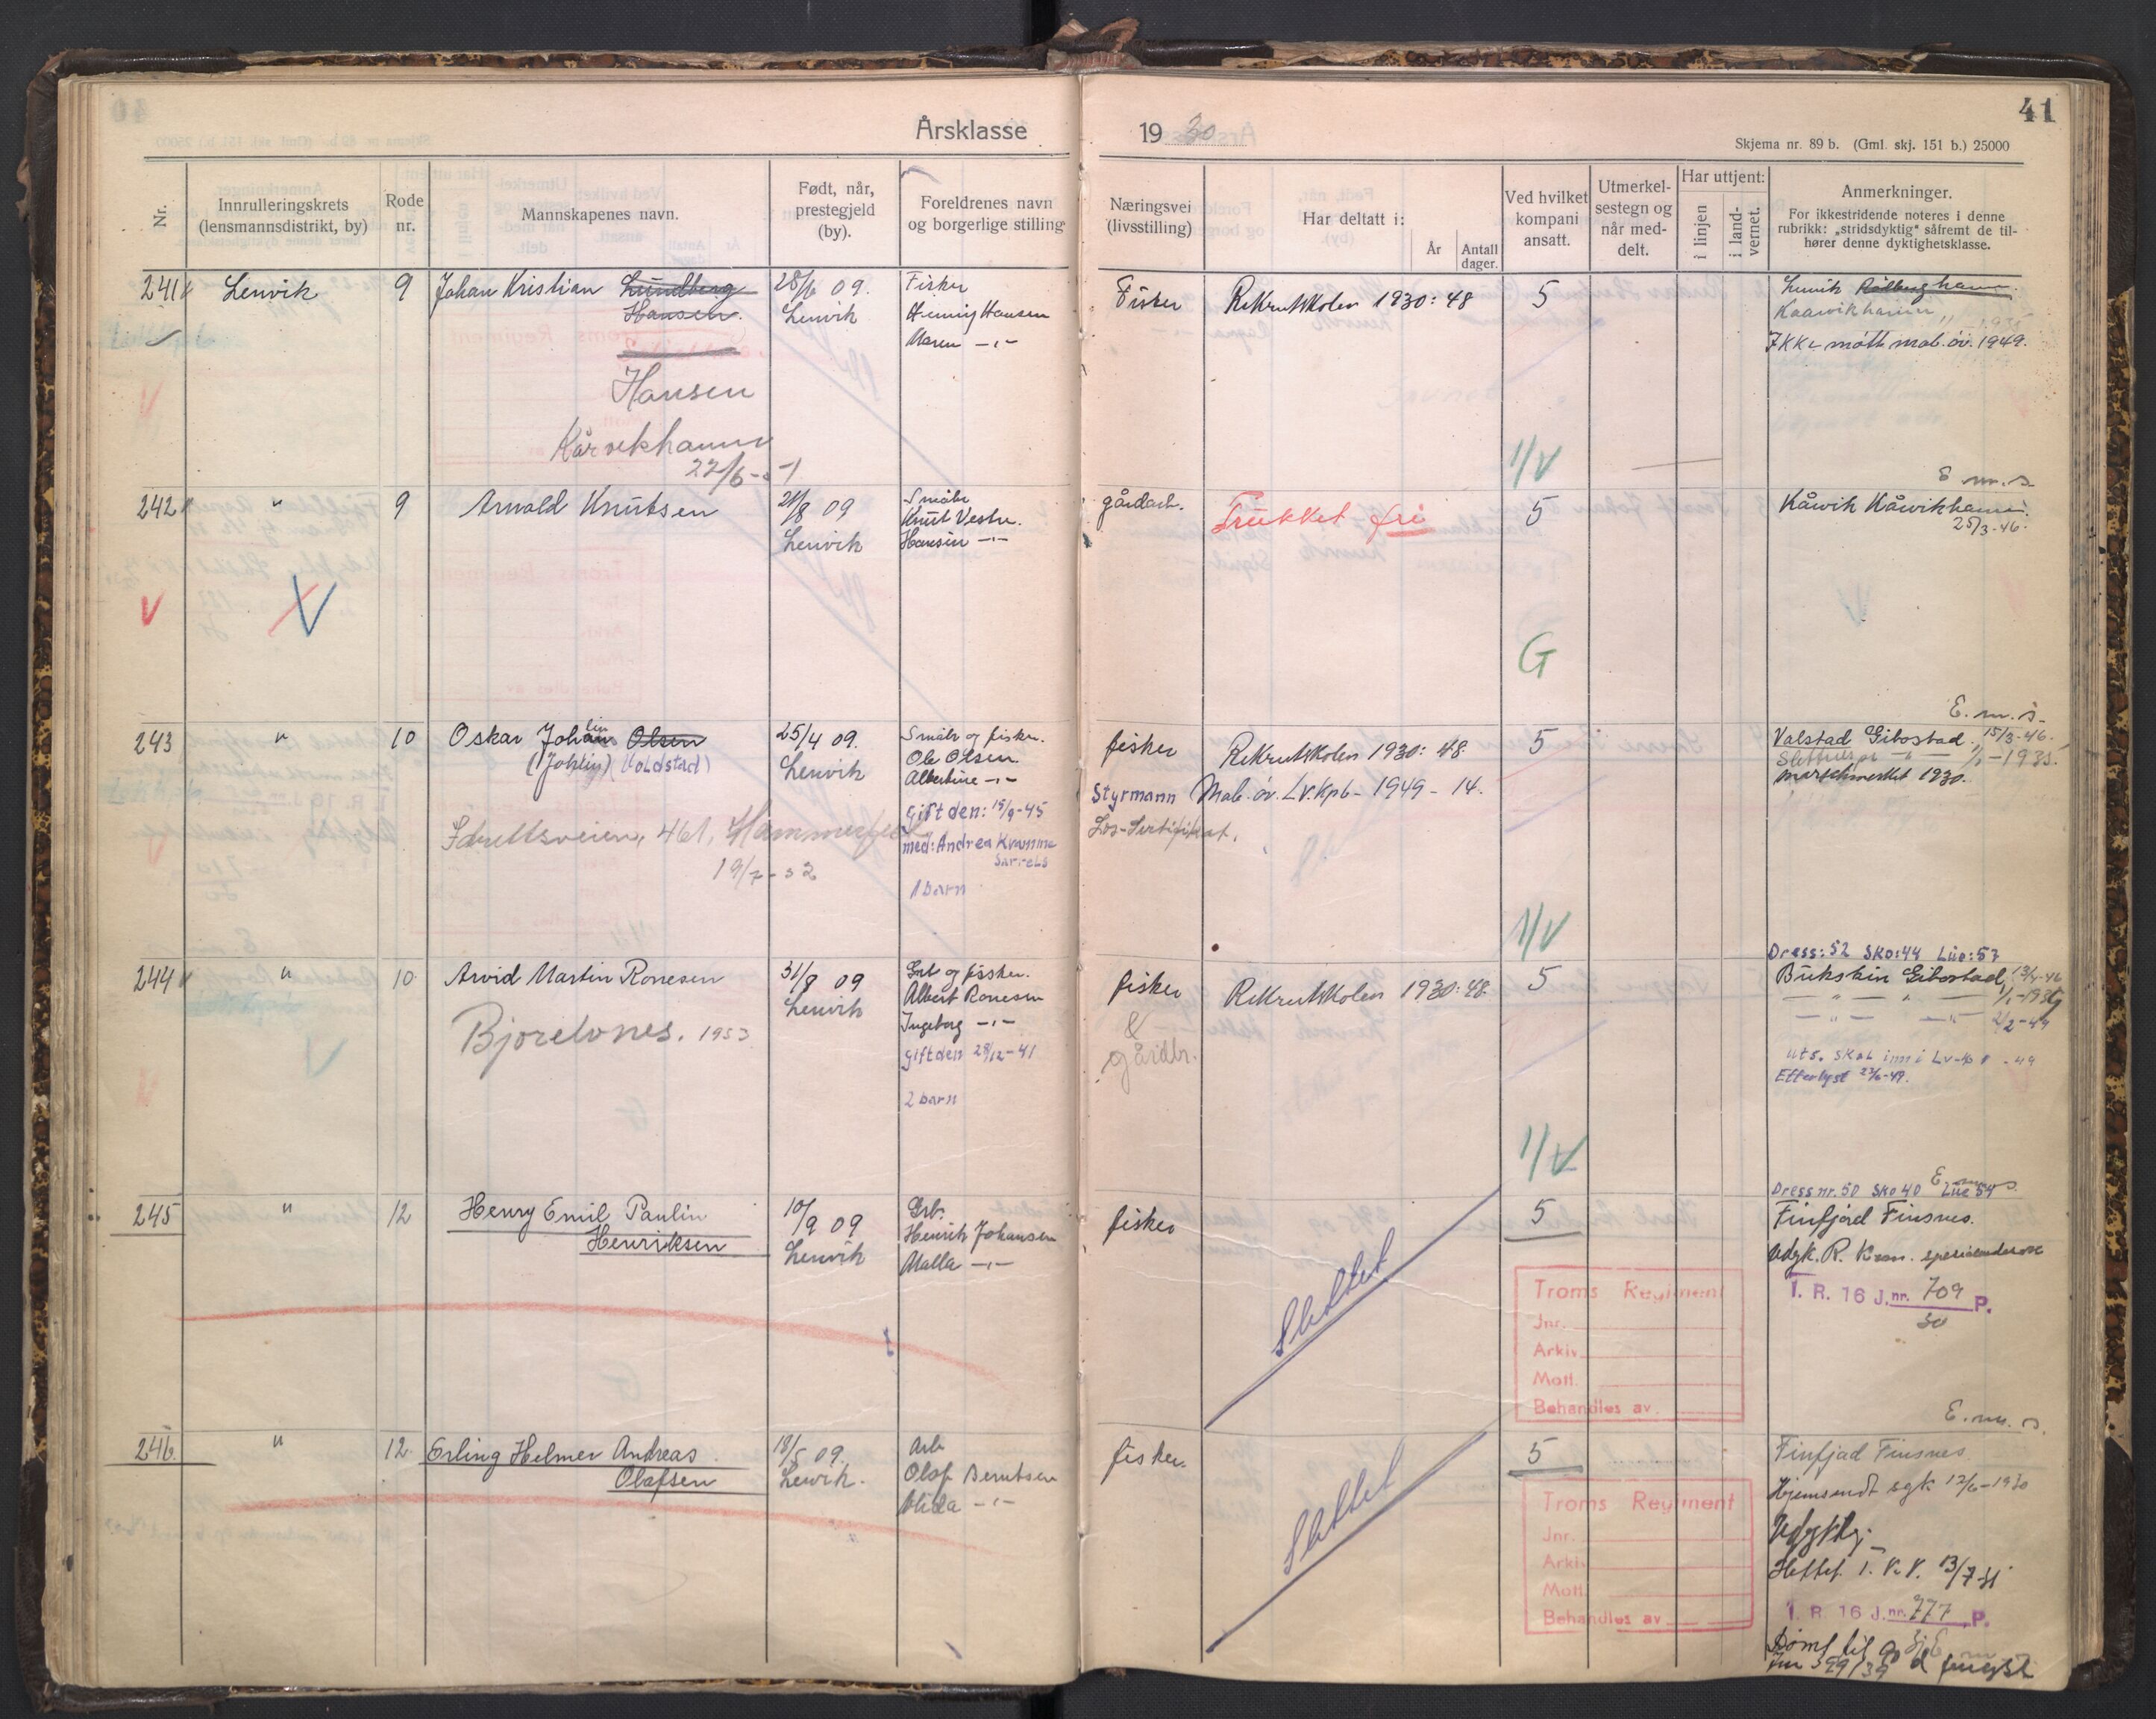 41
Årsklasse 1930
Skjema nr. 89 b. (Gml. skj. 151 b.) 25000
Nr.
Innrulleringskrets (lensmannsdistrikt, by)
Rode nr.
Mannskapenes navn.
Født, når, prestegjeld (by).
Foreldrenes navn og borgerlige stilling
Næringsvei (livsstilling)
Har deltatt i:
År
Antall dager.
Ved hvilket kompani ansatt.
Utmerkelsestegn og når meddelt.
Har uttjent:
i linjen
i landvernet.
Anmerkninger.
For ikkestridende noteres i denne rubrikk: „stridsdyktig" såfremt de tilhører denne dyktighetsklasse.
241
Lenvik
9
Johan Kristian Lundberg
Hansen
Hansen
Kårvikhamn
22/6-51
28/6 09.
Lenvik
Fisker
Henrig Hansen
Maren -"-
Fisker
Rekrutskolen 1930: 48
5
Lenvik
1935
Ikke møtt mob.øv. 1949.
1/V
E m. s.
242
"
9
Arnold Knutsen
21/8 09
Lenvik
Småbr
Knut Vestre.
Hansin -"-
gårdarb.
Trukket fri
5
Kårvik Kårvikhamn.
25/3-46.
V
V
G
E. m. s.
243
"
10
Oskar Johan Olsen
lin
(Johlin) (Voldstad)
Idrettsveien, 461, Hammerfest
19/7-52
25/4 09.
Lenvik
Småbr og fisker.
Ole Olsen
Albertine -"-
Gift den: 15/9-45
med: Andrea Kvamme
1 barn
fisker
Styrmann
Los-Sertifikat.
Rekrutskolen 1930: 48.
Mob.øv. Lv.kp6 - 1949 - 14.
5
Valstad Gibostad. 15/3-46.
1/1-1935.
marschmerket 1930.
1/V
Dress: 52 Sko: 44 Lue: 57
244
"
10
Arvid Martin Ronesen
Bjorelvnes. 1953
31/8 09
Lenvik
Grb og fisker.
Albert Ronesen
Ingeborg -"-
gift den 28/12-41
2 barn
fisker
&
gårdbr.
Rekrutskolen 1930: 48.
5
Bukskin Gibostad 13/4-46
2/2-49
uts. skal inn i Lv-kp - 49
Etterlyst 23/6-49.
1/V
Dress nr. 50 Sko 40 Lue 54
E. m. s.
245
"
12
Henry Emil Paulin
Henriksen
10/9 09
Lenvik
Grb.
Henrik Johansen
Malla -"-
fisker
Slettet
5
Finfjord Finsnes.
Udyk. R. Kom.
T. R. 16 J.nr. 709 P.
30
Troms Regiment
Jnr.
Arkiv
Mott.
Behandles av
E. m. s.
246.
"
12
Erling Helmer Andreas
Olafsen
18/5 09.
Lenvik.
Arb
Olaf Berntsen
Alida -"-
fisker.
Slettet
5
Finfjad Finsnes
Hjemsendt sgk 17/6-1930
13/7-31
T. R. 16 J.nr. 777 P.
Dømt til 90 d fengsel
Jnr 599/39
Troms Regiment
Jnr.
Arkiv
Mott.
Behandles av